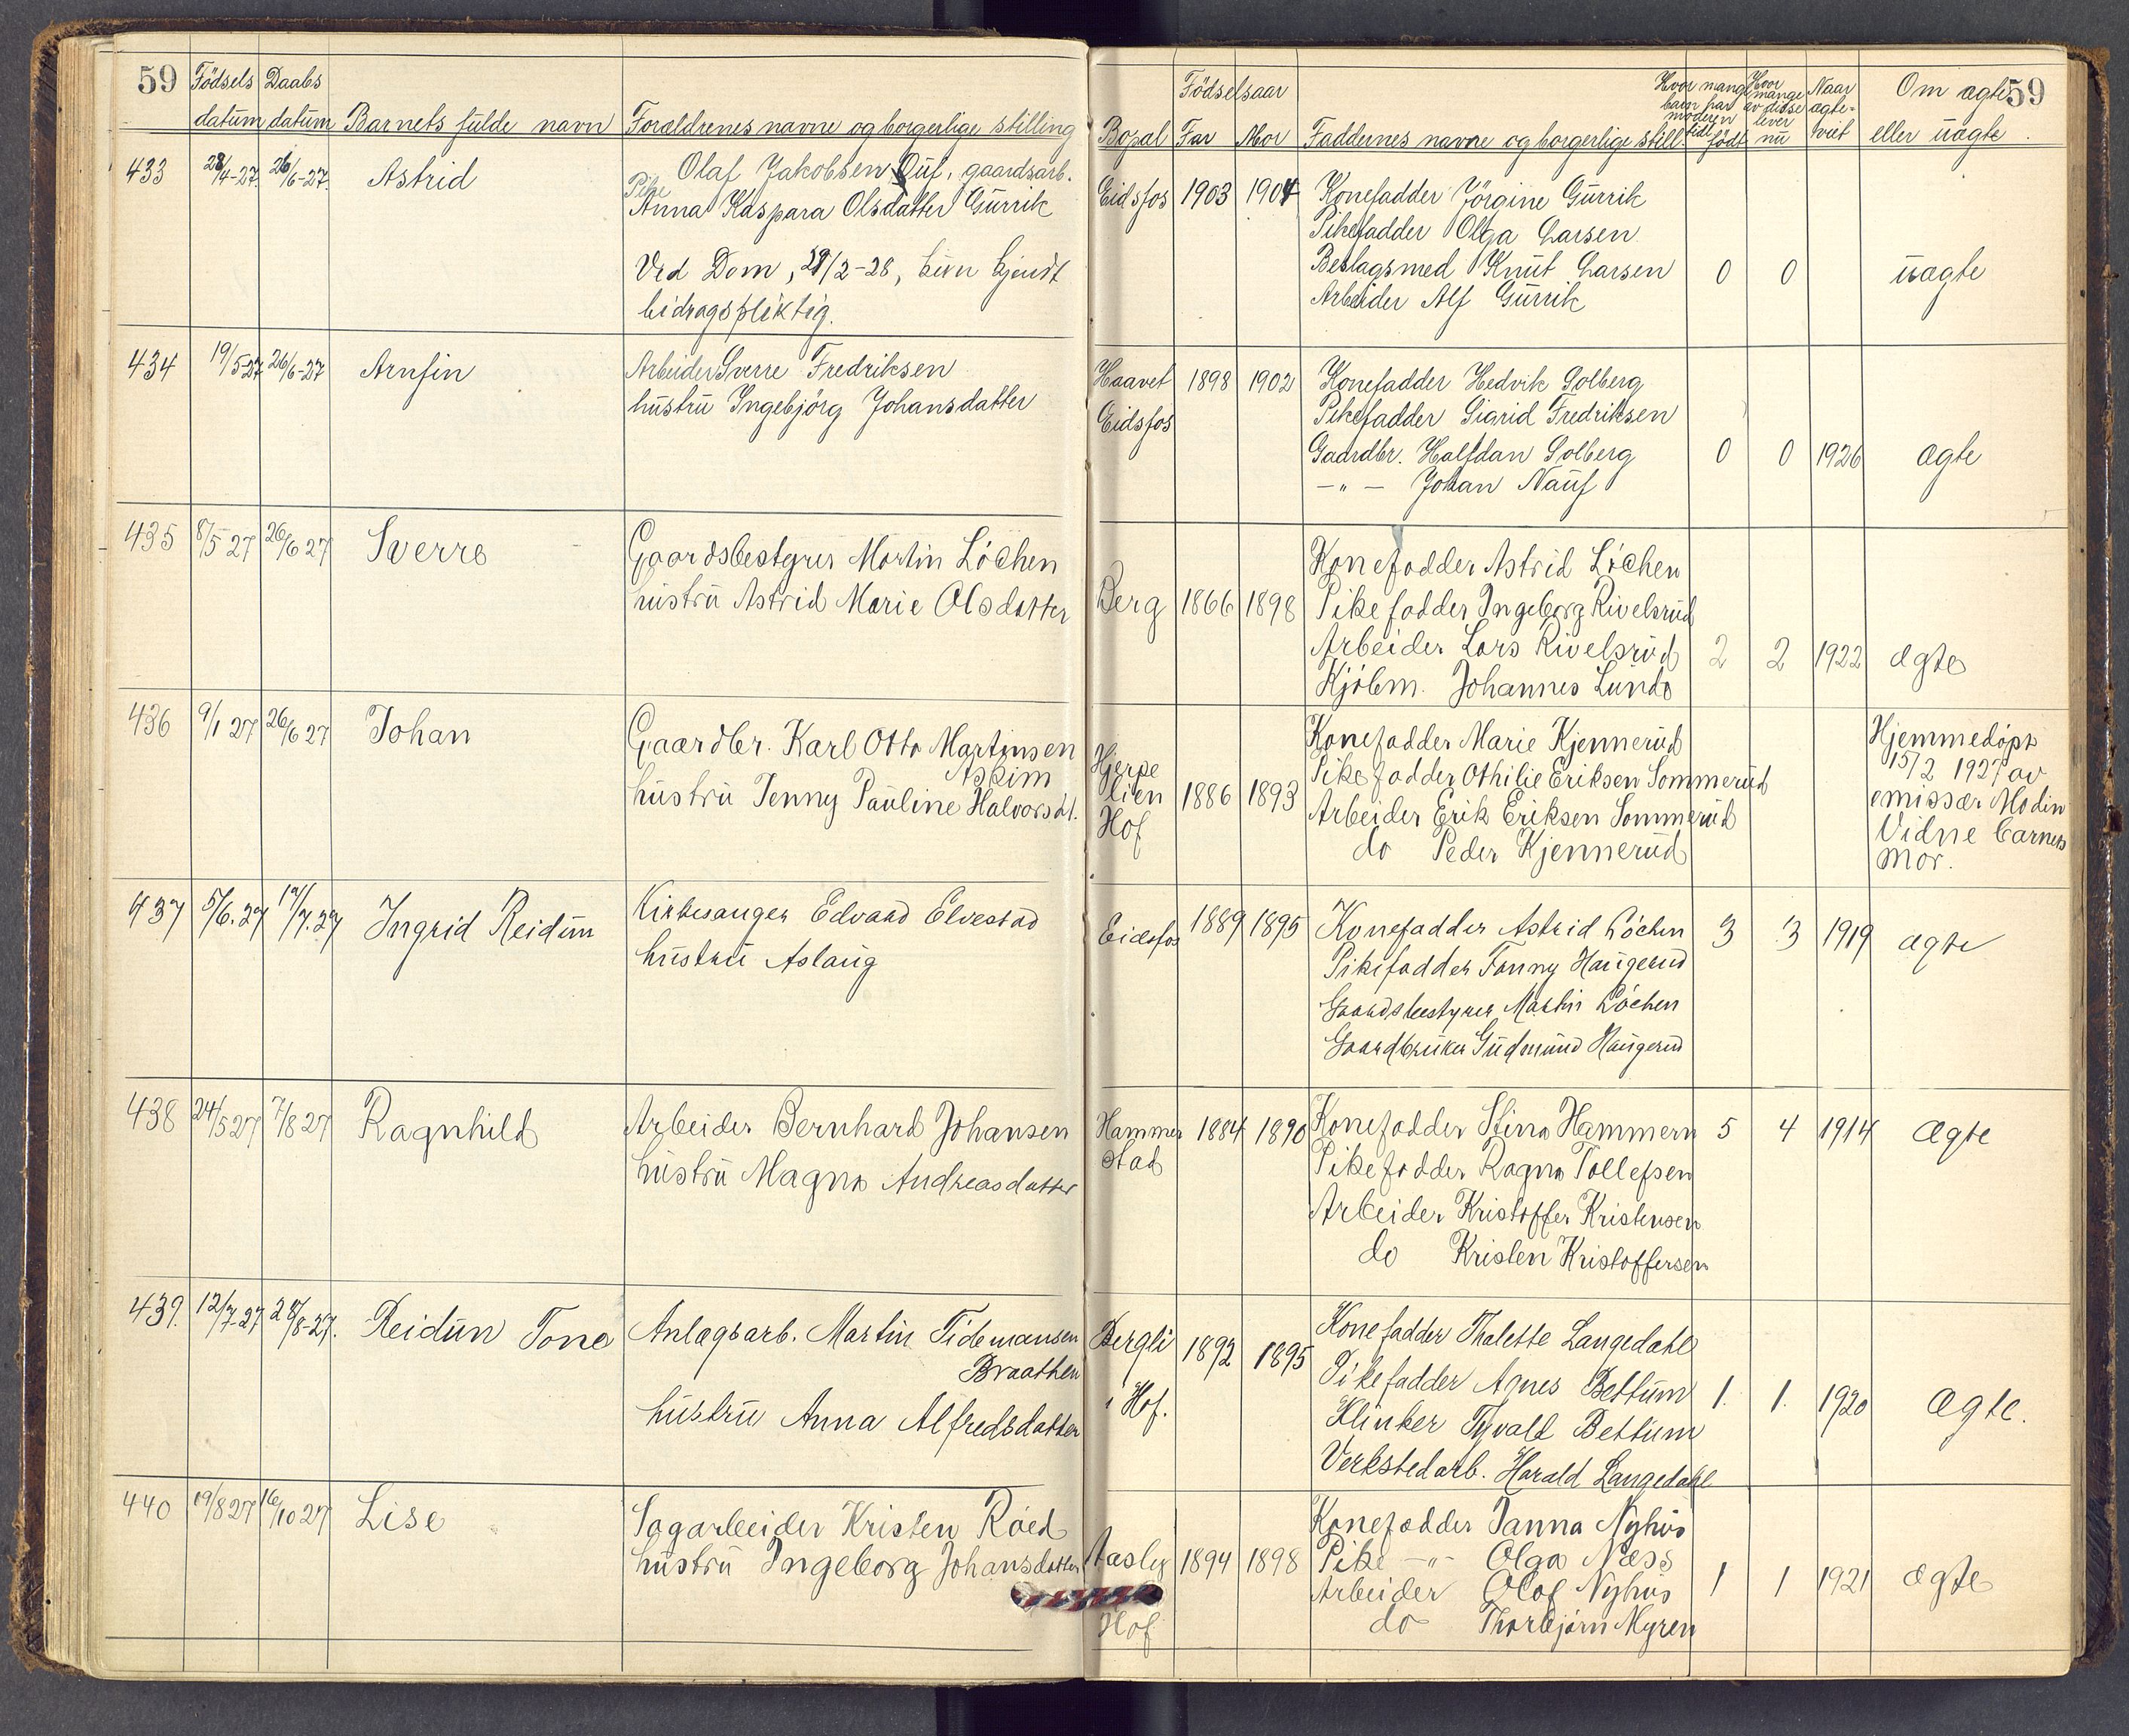 59 Födsels Daabs
datum datum Barnets fulde navn Forældrenes navne og borgerlige stilling
433 28/4-27. 26/6-27. Astrid
Olaf Jakobsen Ruf, gaardsarb.
Pike
Anna Kaspara Olsdatter Gurrik
Ved Dom, 29/2-28, kun kjendt
bidragspliktig.
434 19/5-27 26/6-27 Arnfin
Arbeider Sverre Fredriksen
hustru Ingebjörg Johansdatter
435 8/5 27 26/6 27 Sverre
Gaardsbestyrer Martin Löchen
hustru Astrid Marie Olsdatter
436 9/1 27 26/6 27 Johan
Gaardbr. Karl Otto Martinsen
Askim
hustru Jenny Pauline Halvorsdt.
437 5/6.27 17/7.27 Ingrid Reidun
Kirkesanger Edvard Elvestad
hustru Aslaug
438 24/5 27 7/8 27 Ragnhild
Arbeider Bernhard Johansen
hustru Magna Andreasdatter
439. 12/7-27 28/8-27. Reidun Tone
Anlægsarb. Martin Tidemansen
Braathen
hustru Anna Alfredsdatter
440 19/8 27 16/10 27 Lise
Sagarbeider Kristen Röed
hustru Ingeborg Johansdatter
Födselsaar
Bopæl Far Mor Faddernes navne og borgerlige still.
Hvor mange
barn har
moderen
født
Hvor
mange
av disse
lever
nu
Naar
ægte-
viet
Om ægte 59
eller uægte.
Eidsfos 1903 1904 Konefadder Jörgine Gurrik
Pikefadder Olga Larsen
Beslagsmed Knut Larsen 0 0 uægte
Arbeider Alf Gurrik
Haavet 1898 1902 Konefadder Hedvik Solberg
Eidsfos Pikefadder Sigrid Fredriksen
Gaardbr. Halfdan Solberg 0 0 1926 ægte
—"— Johan Nauf
Konefadder Astrid Löchen
Berg 1866 1898 Pikefadder Ingeborg Rivelsrud
Arbeider Lars Rivelsrud 2 2 1922 ægte
Kjöbm. Johannes Lunde
Konefadder Marie Kjennerud
Hjerpe
lien
Hof
1886 1893 Pikefadder Othilie Eriksen Sommerud
Arbeider Erik Eriksen Sommerud
do Peder Kjennerud
Hjemmedöpt
15/2 1927 av
emissær Modin
Vidne barnets
mor.
Eidsfos 1889 1895 Konefadder Astrid Löchen 3 3 1919 ægte
Pikefadder Fanny Haugerud
Gaardsbestyrer Martin Löchen
Gaardbruker Gudmund Haugerud
Hammer
stad
1884 1890 Konefadder Stina Hammern 5 4 1914 Ægte
Pikefadder Ragna Tollefsen
Arbeider Kristoffer Kristensen
do Kristen Kristoffersen
Bergli
i Hof.
1892 1895 Konefadder Thalette Langedahl
Pikefadder Agnes Bettum 1. 1. 1920 Ægte.
Klinker Tyvald Bettum
Verkstedarb. Harald Langedahl
Konefadder Janna Nyhus
Aasly 1894 1898 Pike —"— Olga Næss
Arbeider Olaf Nyhus 1 1 1921 ægte
Hof do Thorbjörn Myren